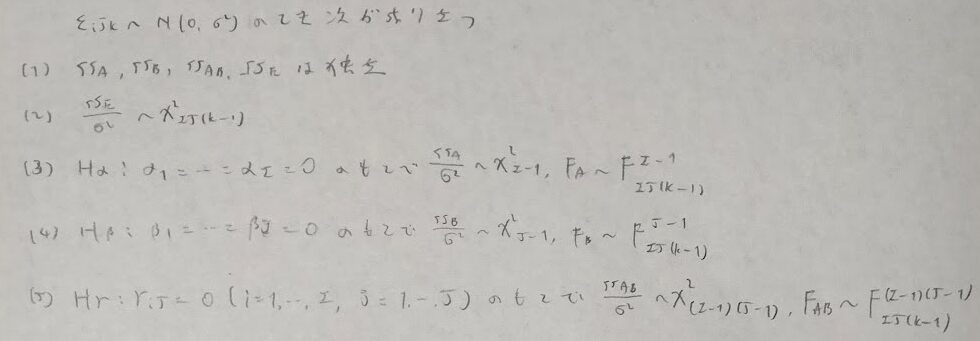 εijk ~ N(0, σ²) のとき次が成り立つ
(1) SSA, SSB, SSAB, SSE は独立
(2) SSE/σ² ~ χ²IJ(K-1)
(3) Hα : α1 = … = αI = 0 のもとで SSA/σ² ~ χ²I-1, FA ~ F^{I-1}_{IJ(K-1)}
(4) Hβ : β1 = … = βJ = 0 のもとで SSB/σ² ~ χ²J-1, FB ~ F^{J-1}_{IJ(K-1)}
(5) Hγ : γij = 0 (i = 1, …, I, j = 1, … J) のもとで SSAB/σ² ~ χ²(I-1)(J-1), FAB ~ F^{(I-1)(J-1)}_{IJ(K-1)}